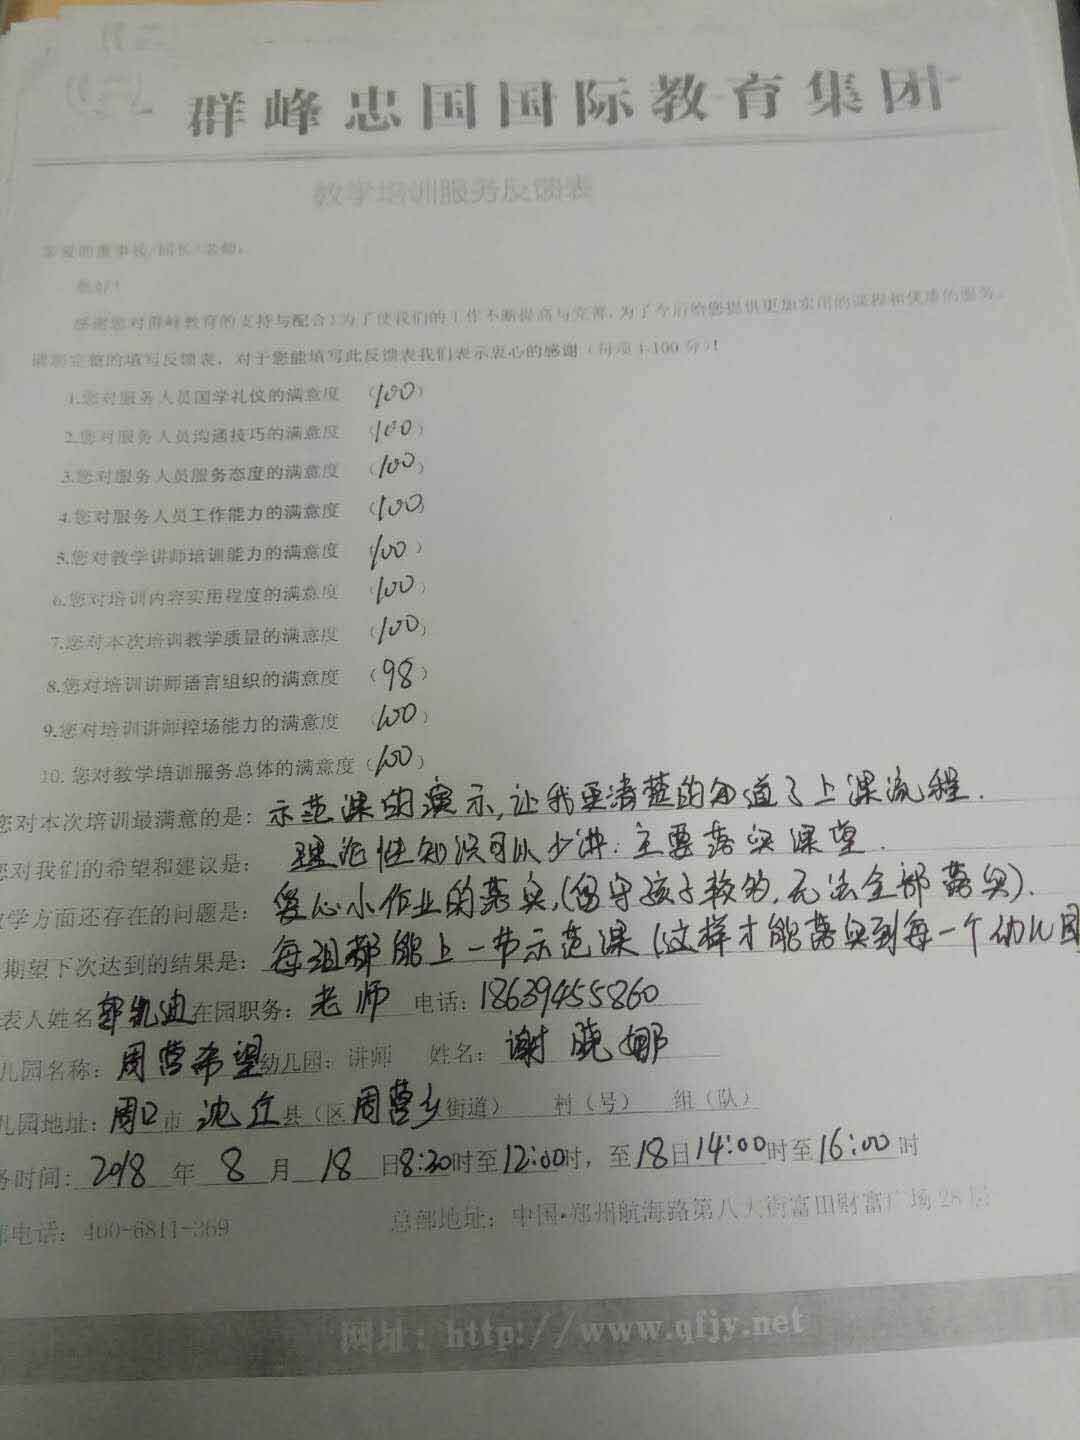 群峰忠国国际教育集团
教学培训服务反馈表
尊爱的董事长/园长/老师：
您好！
感谢您对群峰教育的支持与配合！为了使我们的工作不断提高与完善，为了今后给您提供更加实用的课程和优质的服务，
请您完整的填写反馈表，对于您能填写此反馈表我们表示衷心的感谢（每项1-100分）！
1.您对服务人员国学礼仪的满意度 （100）
2.您对服务人员沟通技巧的满意度 （100）
3.您对服务人员服务态度的满意度 （100）
4.您对服务人员工作能力的满意度 （100）
5.您对教学讲师培训能力的满意度 （100）
6.您对培训内容实用程度的满意度 （100）
7.您对本次培训教学质量的满意度 （100）
8.您对培训讲师语言组织的满意度 （98）
9.您对培训讲师控场能力的满意度 （100）
10. 您对教学培训服务总体的满意度（100）
您对本次培训最满意的是：示范课的演示，让我更清楚的知道了上课流程.
您对我们的希望和建议是：理论性知识可以少讲.主要落实课堂.
教学方面还存在的问题是：爱心小作业的落实，(留守孩子较多，无法全部落实).
期望下次达到的结果是：每组都能上一节示范课（这样才能落实到每一个幼儿园
表人姓名 郭凯迪 在园职务：老师 电话：18639455860
儿园名称：周营希望幼儿园；讲师 姓名：谢晓娜
儿园地址：周口市 沈丘县（区 周营乡街道） 村（号） 组（队）
务时间：2018年8月18日8:30时至12:00时，至18日14:00时至16:00时
部电话：400-6811-369 总部地址：中国·郑州航海路第八大街富田财富广场28层
网址：http://www.qfjy.net